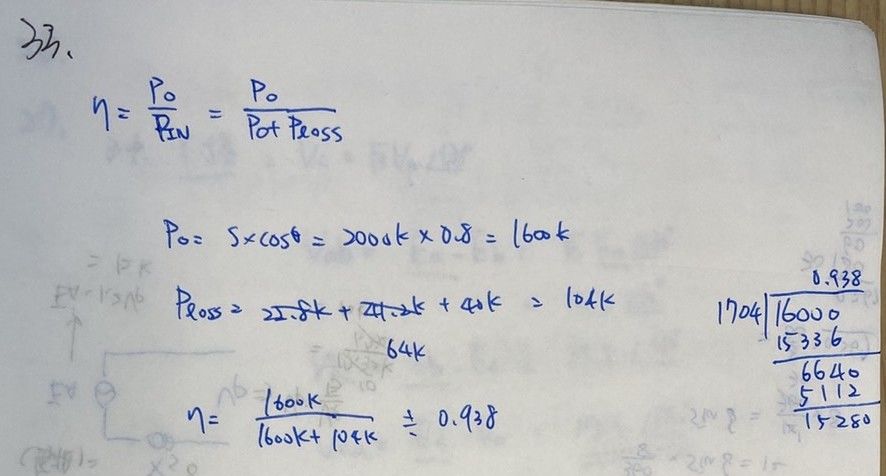 33.
η = P₀/P_IN = P₀/(P₀+ Pℓoss)
P₀ = S×cosθ = 2000k × 0.8 = 1600k
Pℓoss = 22.8k + 41.2k + 40k = 104k
64k
η = 1600k/(1600k+104k) ≑ 0.938
0.938
1704 16000
15336
6640
5112
15280